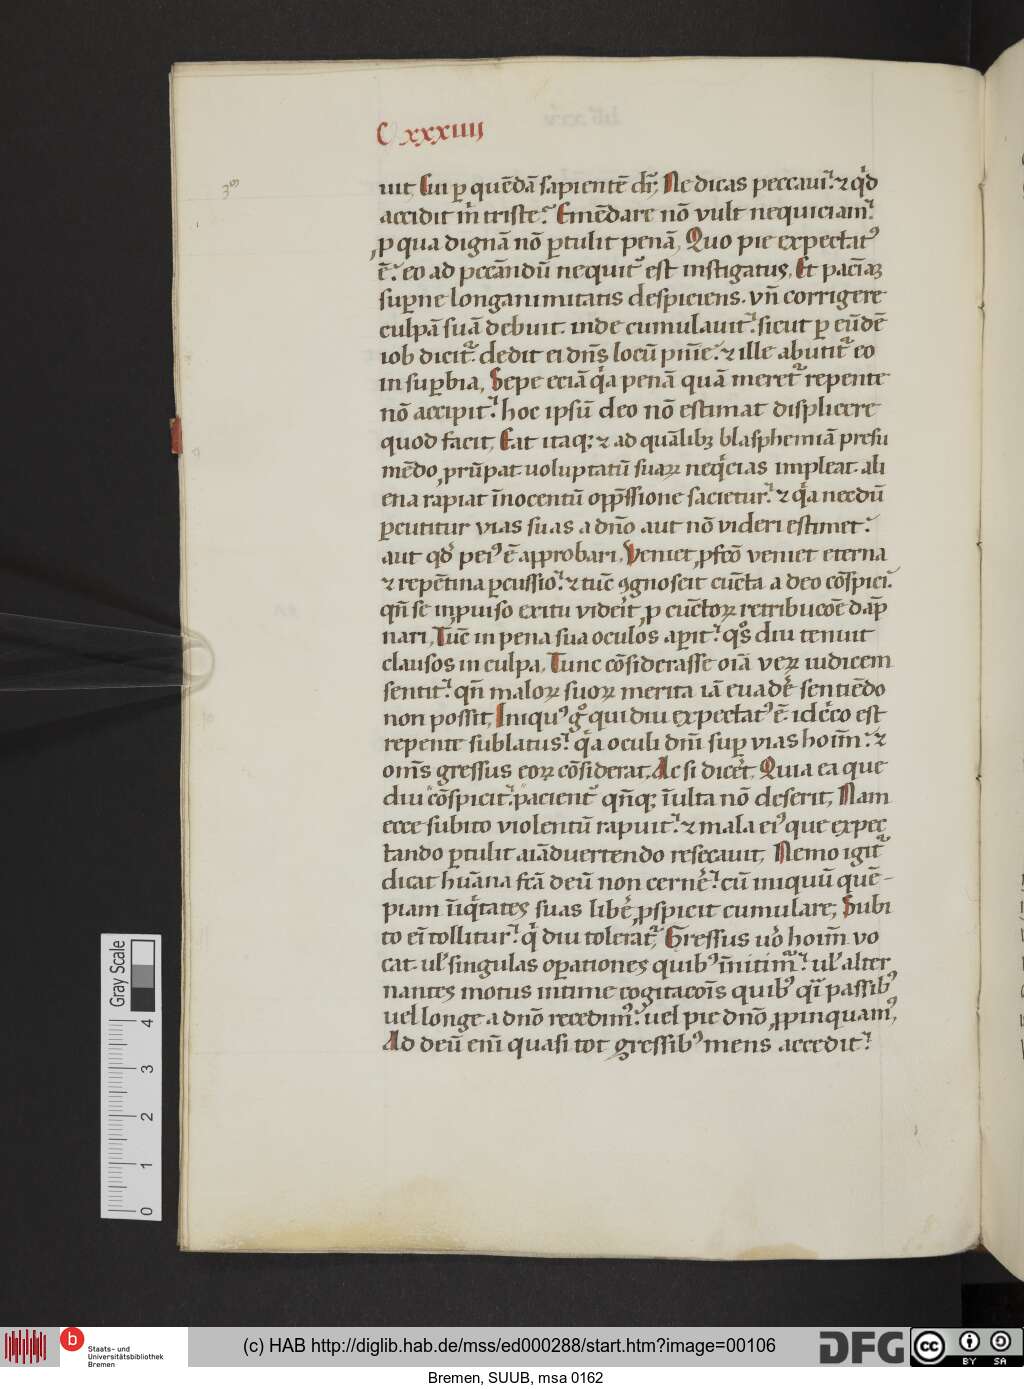 C xxxiiij
uit, Cui ꝑ quēdā sapientē dr̄; Ne dicas peccaui: ⁊ qd̓
accidit m̓ triste? Emēdare nō vult nequiciam:
ꝓ qua dignā nō ꝑtulit penā, Quo pie expectatꝰ
ē: eo ad pccāndū nequiꝰ est instigatus, Et paciā
suꝑne longanimitatis despiciens. vn̄ corrigere
culpā suā debuit. inde cumulauit: sicut ꝑ eūdē
iob dicit᷑: dedit ei dn̄s locū pnīe: ⁊ ille abutit᷑ eo
in suꝑbia, Sepe eciā q̓a penā quā meret᷑ repente
nō accipit: hoc ipsū deo nō estimat displicere
quod facit, Eat itaqꝫ ⁊ ad quālibꝫ blasphemiā presu
mēdo ꝓrūpat. uoluptatū suaꝝ neq̓cias impleat. ali
ena rapiat īnocentū opp̄ssione sacietur: ⁊ q̓a necdū
ꝑcutitur vias suas a dn̄o aut nō videri estimet:
aut qd̓ peiꝰ ē approbari, Veniet ꝓfcō veniet eterna
⁊ repētina ꝑcussio: ⁊ tūc ꝯgnoscit cūcta a deo cōspici:
qn̄ se īprouiso exitu viderit ꝓ cūctoꝝ retribucōe dāp
nari, Tūc in pena sua oculos aꝑit: qͦs diu tenuit
clausos in culpa, Tunc cōsiderasse oīā veꝝ iudicem
sentit: qn̄ maloꝝ suoꝝ merita iā euadē sentiēdo
non possit, Iniquꝰ gͦ qui diu expectatꝰ ē. idc̓co est
repente sublatus: q̓a oculi dn̄i suꝑ vias hoīm: ⁊
oms̄ gressus eoꝝ cōsiderat, Ac si dicēt, Quia ea que
diu cōspicit: pacient᷑ qn̄qꝫ īulta nō deserit, Nam
ecce subito violentū rapuit: ⁊ mala eiꝰ que expec
tando ꝑtulit aīaduertendo resecauit, Nemo igit᷑
dicat hūana fcā deū non cernē: cū iniquū quē-
piam īiq̓tates suas libē ꝓspicit cumulare, Subi
to eī tollitur: q̓ diu tolerat᷑, Gressus uͦo hoīm vo
cat. ul̓ singulas oꝑationes quibꝰ īnitim᷑: ul̓ alter
nantes motus intime cogitacoīs quibꝰ q̄i passibꝰ
uel longe a dn̄o recedimꝰ: uel pie dn̄o ꝓpinquamꝰ,
Ad deū eni̅ quasi tot gressibꝰ mens accedit:
Gray Scale
4
3
2
1
0
b
Staats- und
Universitätsbibliothek
Bremen
(c) HAB http://diglib.hab.de/mss/ed000288/start.htm?image=00106
DFG
cc
BY SA
Bremen, SUUB, msa 0162